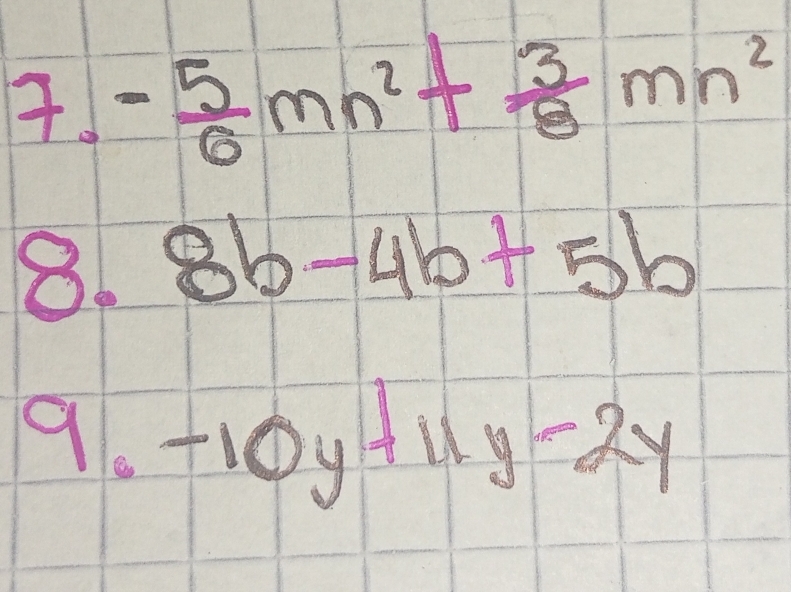 7. -5/6 mn² + 3/8 mn²
8. 8b - 4b + 5b
9. -10y + 11y - 2y